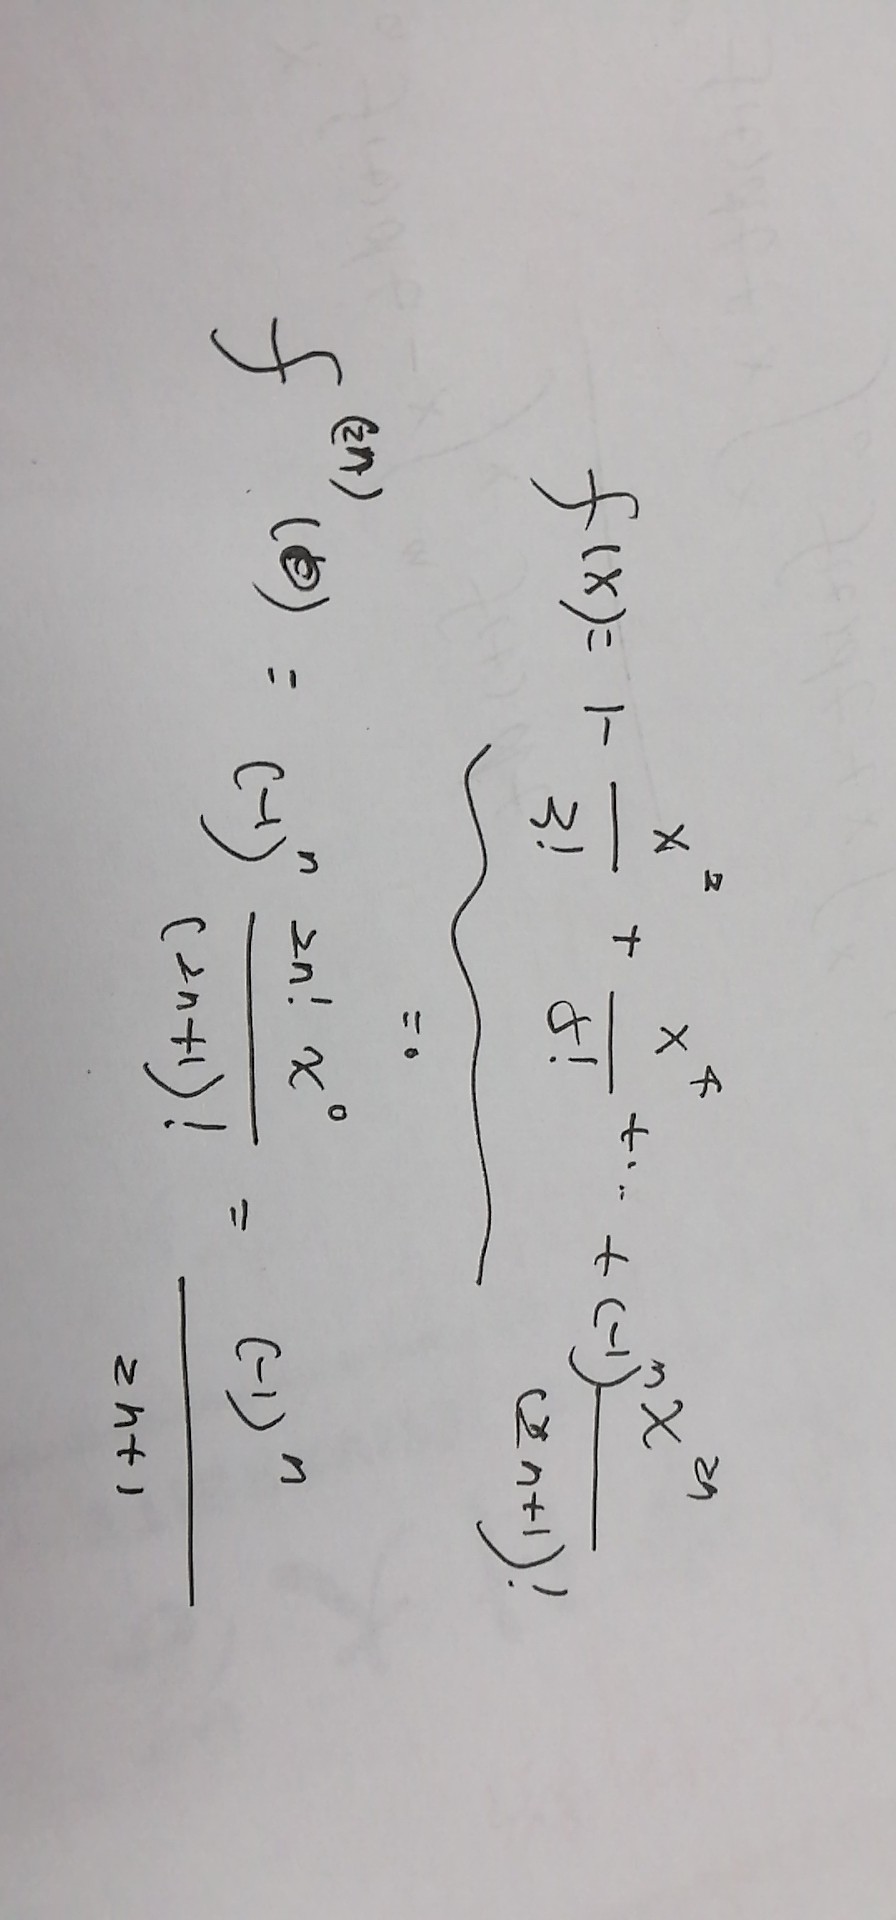 f(x) = 1 - x²/3! + x⁴/5! + ... + (-1)ⁿ x²ⁿ/(2n+1)!
= 0
f⁽²ⁿ⁾(0) = (-1)ⁿ 2n! x⁰/(2n+1)! = (-1)ⁿ/2n+1